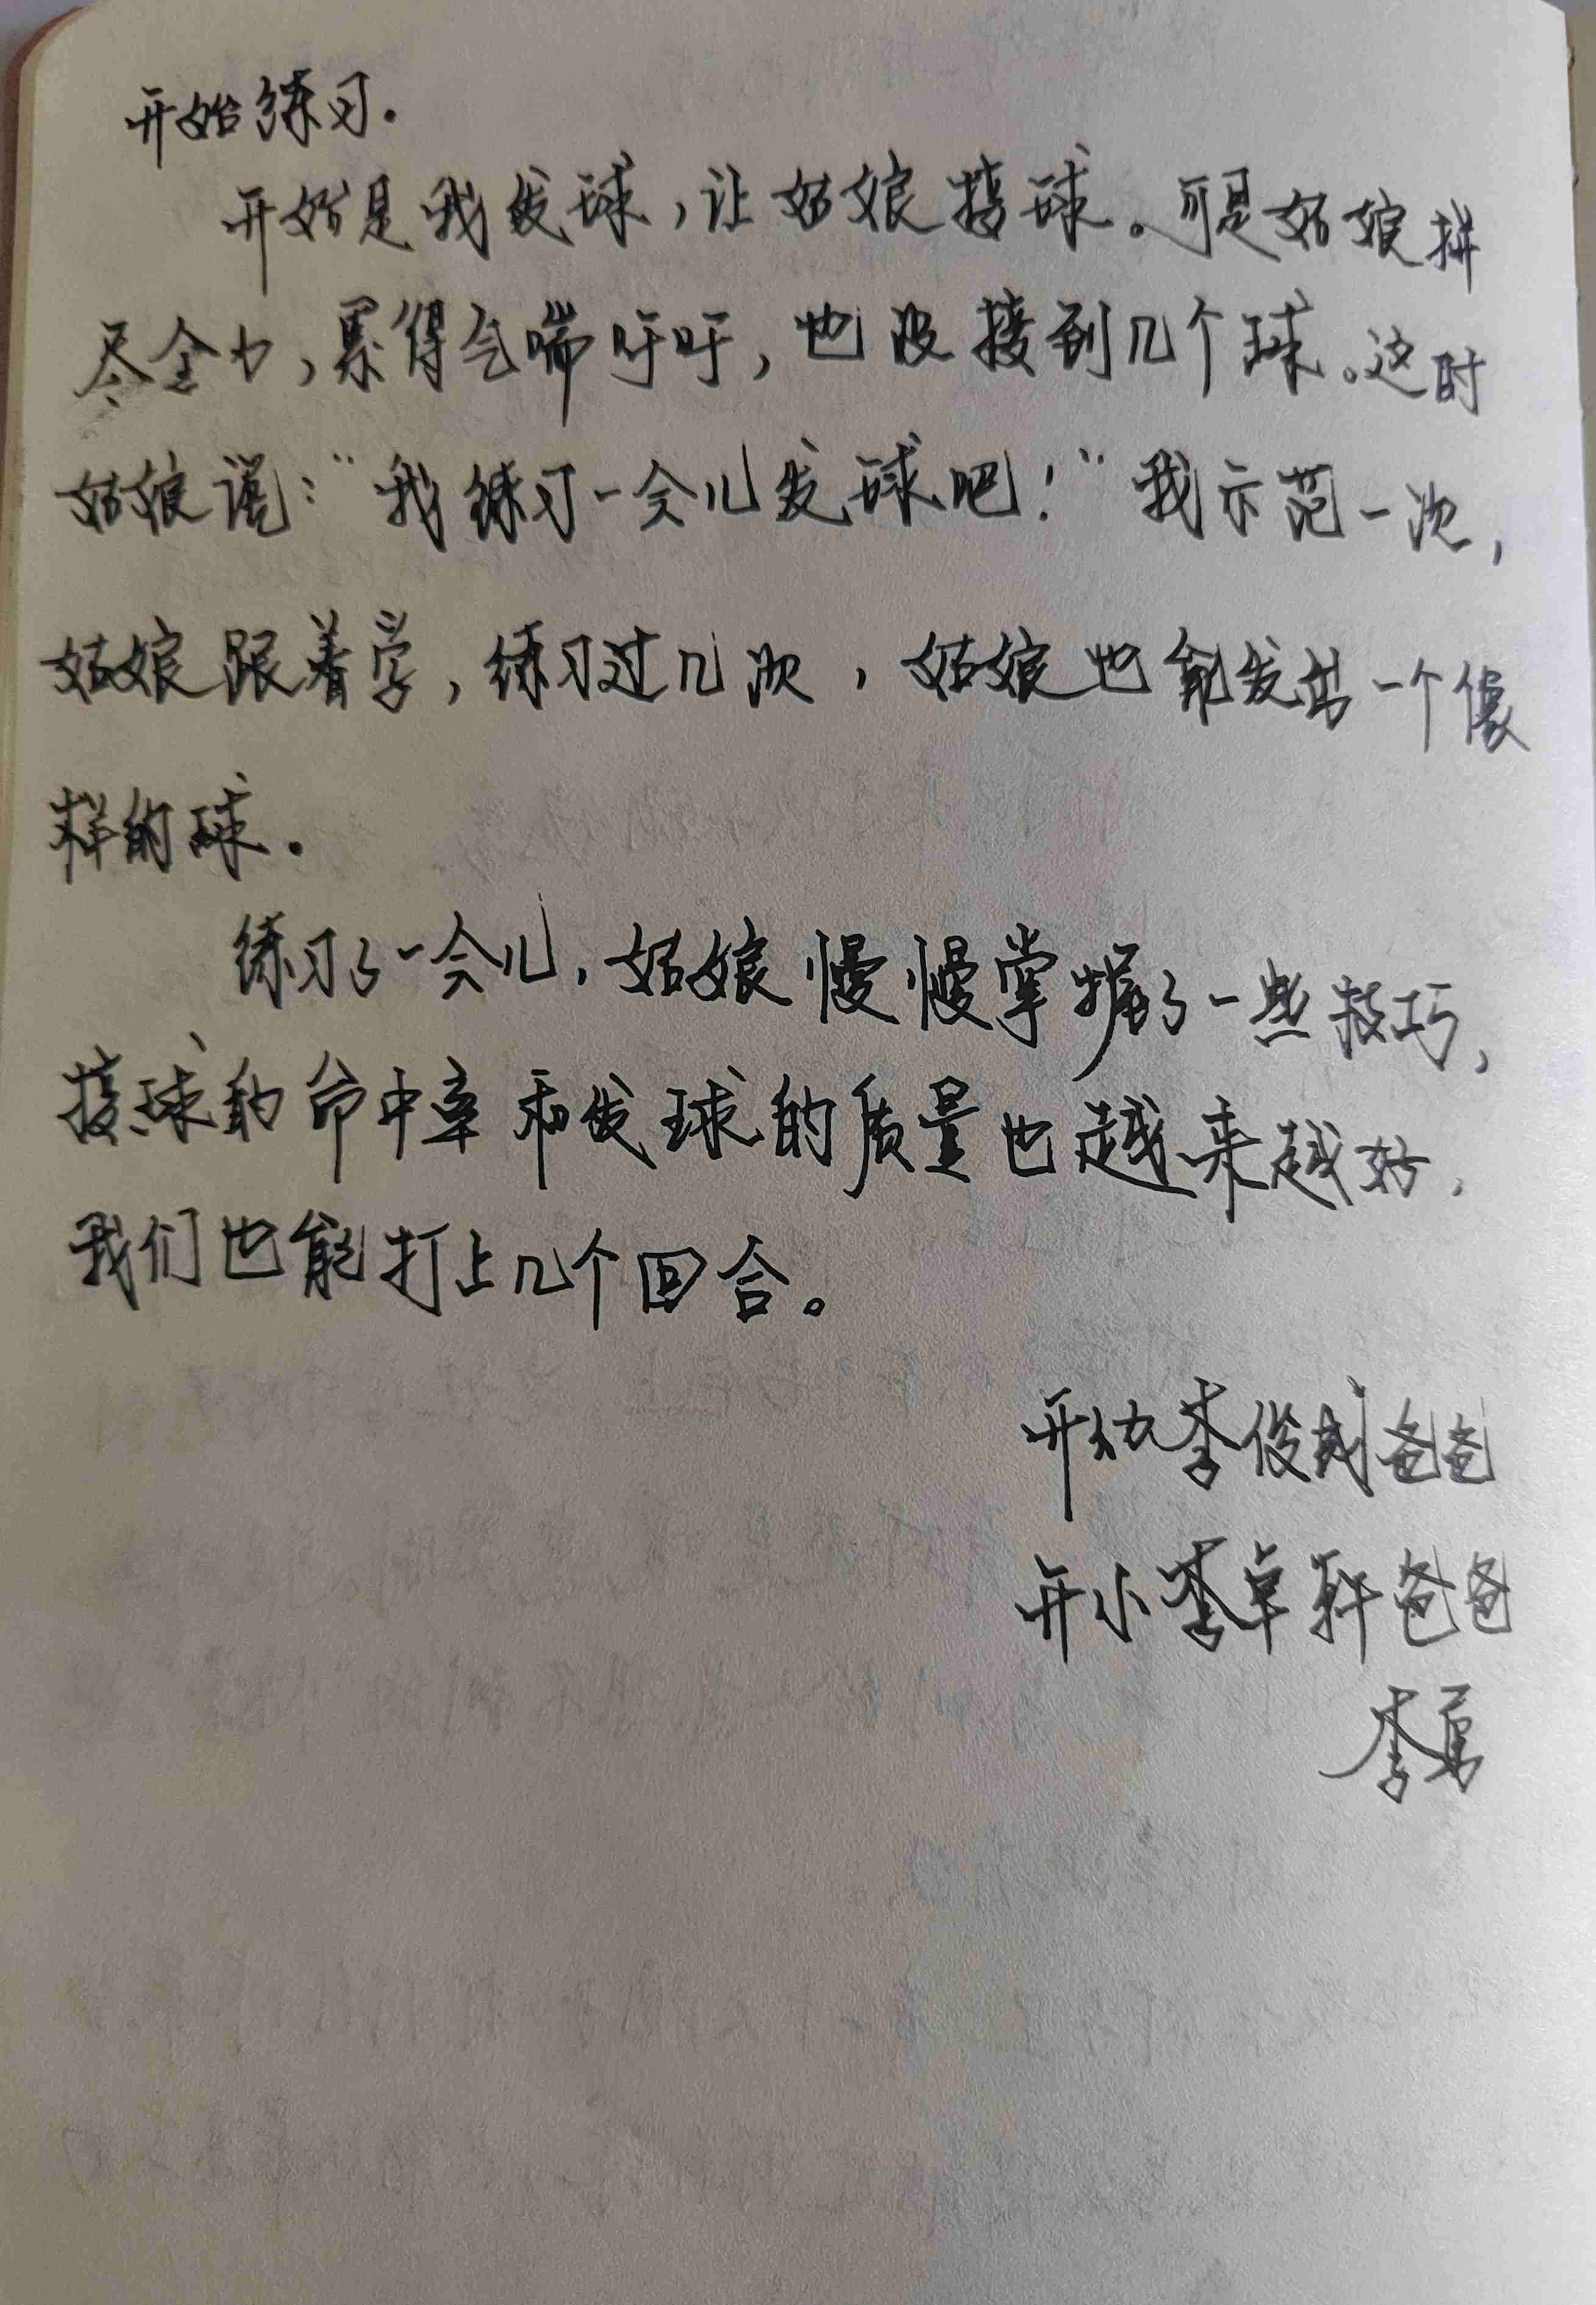 开始练习.
开始是我发球,让姑娘接球。可是姑娘拼
尽全力,累得气喘吁吁,也没接到几个球。这时
姑娘说:“我练习一会儿发球吧!”我示范一次,
姑娘跟着学,练习过几次,姑娘也能发出一个像
样的球.
练习了一会儿,姑娘慢慢掌握了一些技巧,
接球的命中率和发球的质量也越来越好,
我们也能打上几个回合。
开幼李俊 爸爸
开小李卓轩爸爸
李